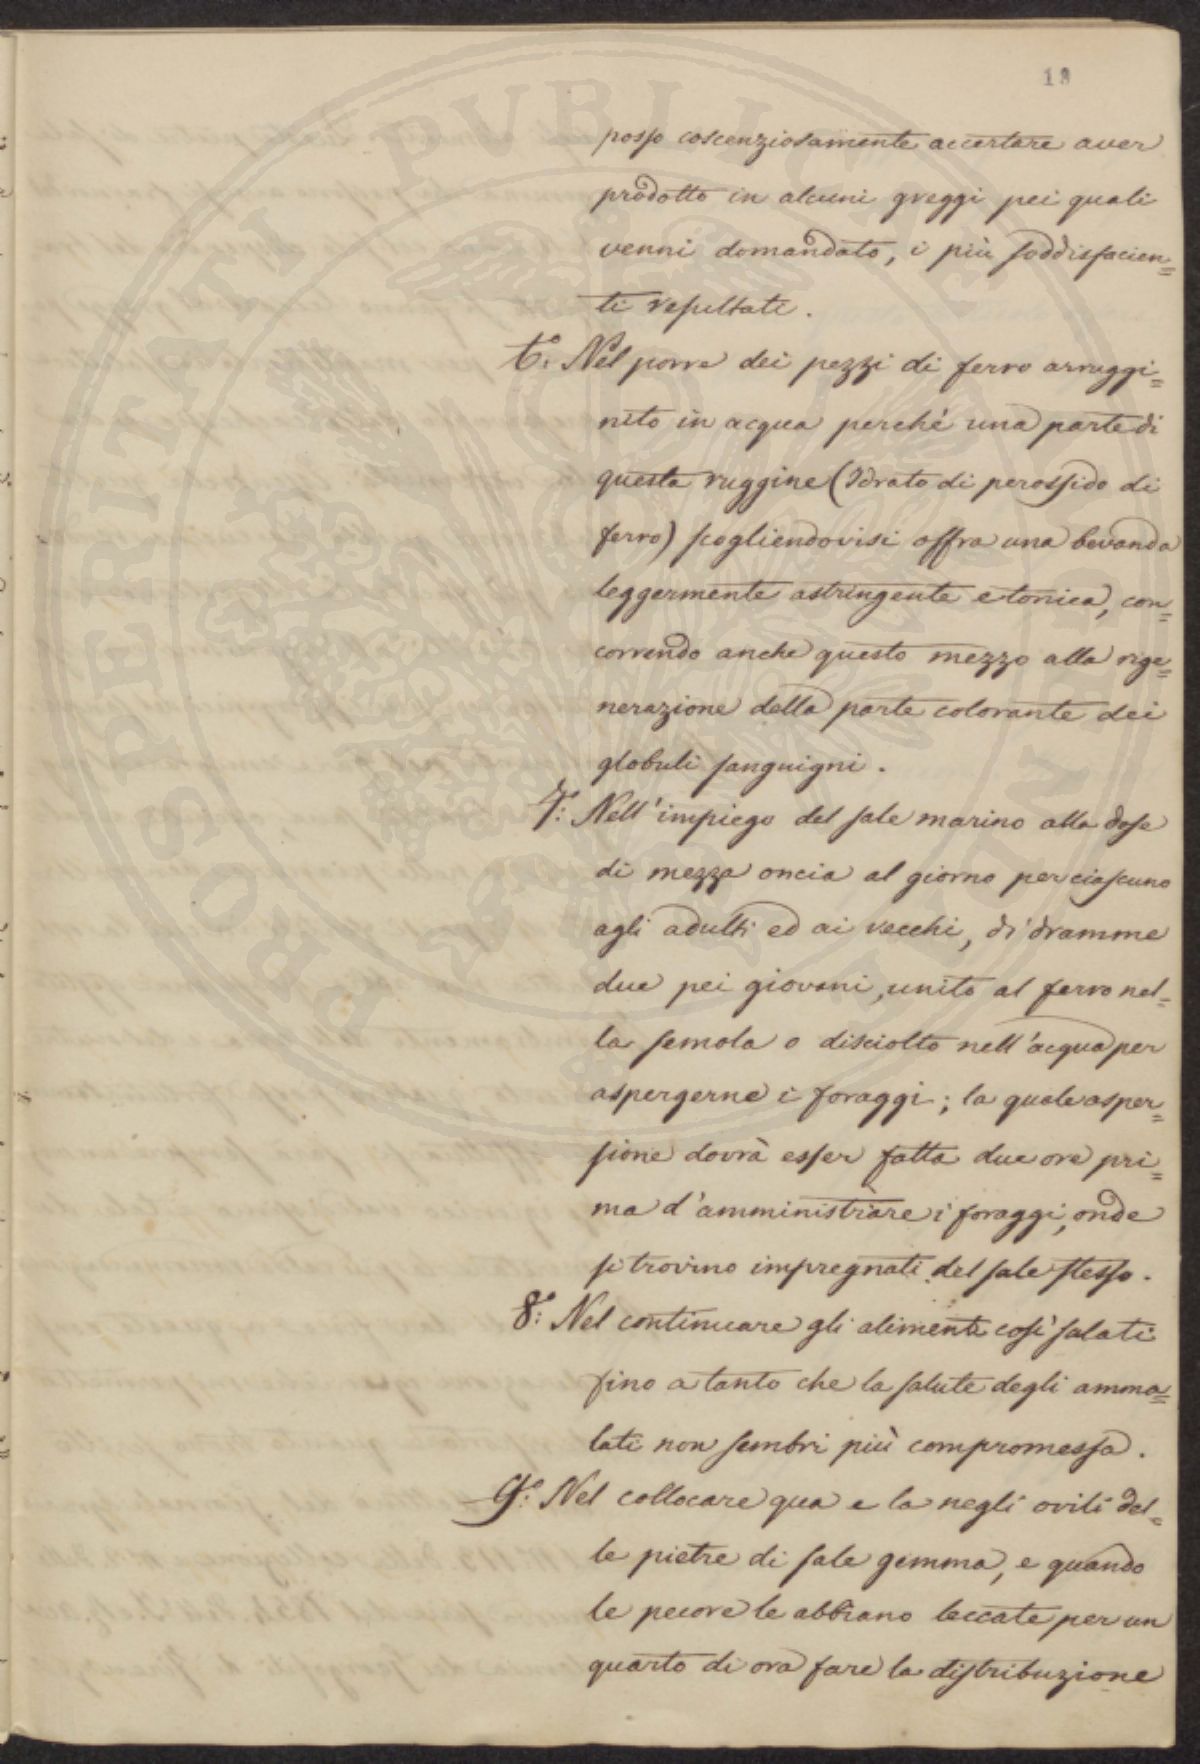 13
PROSPERITATI PUBLICAE
posso coscenziosamente accertare aver
prodotto in alcuni greggi pei quali
venni domandato, i più soddisfacien=
ti resultati.
6.° Nel porre dei pezzi di ferro arruggi=
nito in acqua perchè una parte di
questa ruggine (Idrato di perossido di
ferro) scogliendovisi offra una bevanda
leggermente astringente e tonica, con=
correndo anche questo mezzo alla rige=
nerazione della parte colorante dei
globuli sanguigni.
7.° Nell'impiego del sale marino alla dose
di mezza oncia al giorno per ciascuno
agli adulti ed ai vecchi, di dramme
due pei giovani, unito al ferro nel=
la semola o disciolto nell'acqua per
aspergerne i foraggi; la quale asper=
sione dovrà esser fatta due ore pri=
ma d'amministrare i foraggi, onde
si trovino impregnati del sale stesso.
8.° Nel continuare gli alimenti così salati
fino a tanto che la salute degli amma=
lati non sembri più compromessa.
9.° Nel collocare qua e la negli ovili del=
le pietre di sale gemma, e quando
le pecore le abbiano leccate per un
quarto di ora fare la distribuzione